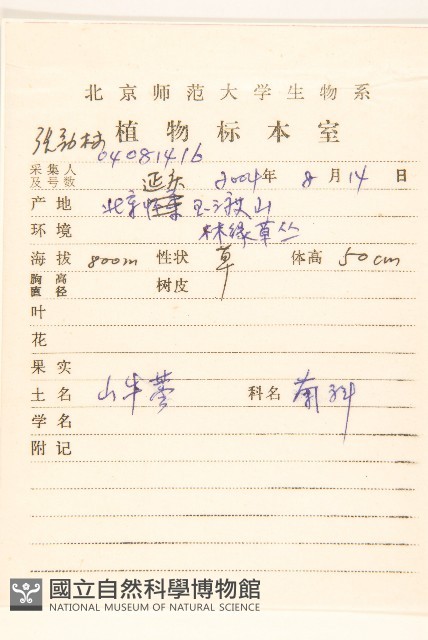 北京师范大学生物系
植物标本室
采集人及号数 04081416 2004年 8月14日
产地 北京 延庆 玉渡山
环境 林缘草丛
海拔 800m 性状 草 体高 50cm
胸高直径 树皮
叶
花
果实
土名 山牛蒡 科名 菊科
学名
附记
國立自然科學博物館
NATIONAL MUSEUM OF NATURAL SCIENCE